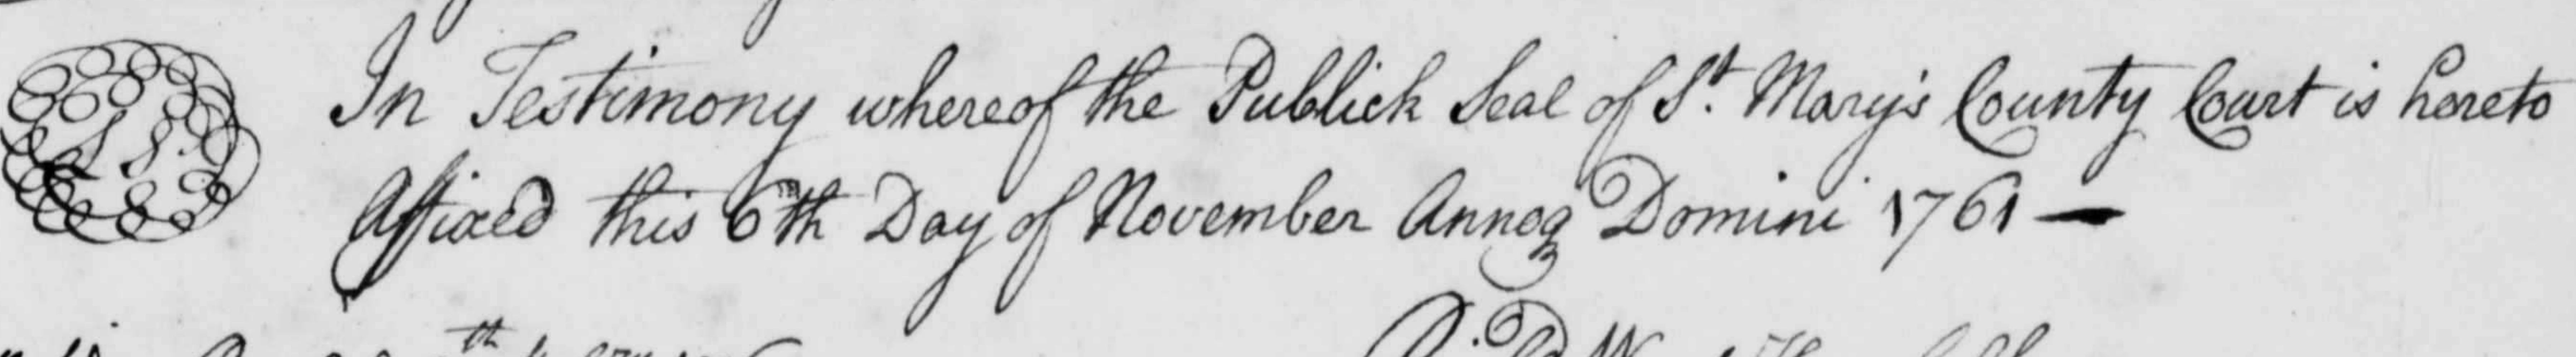 In Testimony whereof the Publick Seal of St. Mary's County Court is hereto
Affixed this 6th Day of November Annoq Domini 1761 —